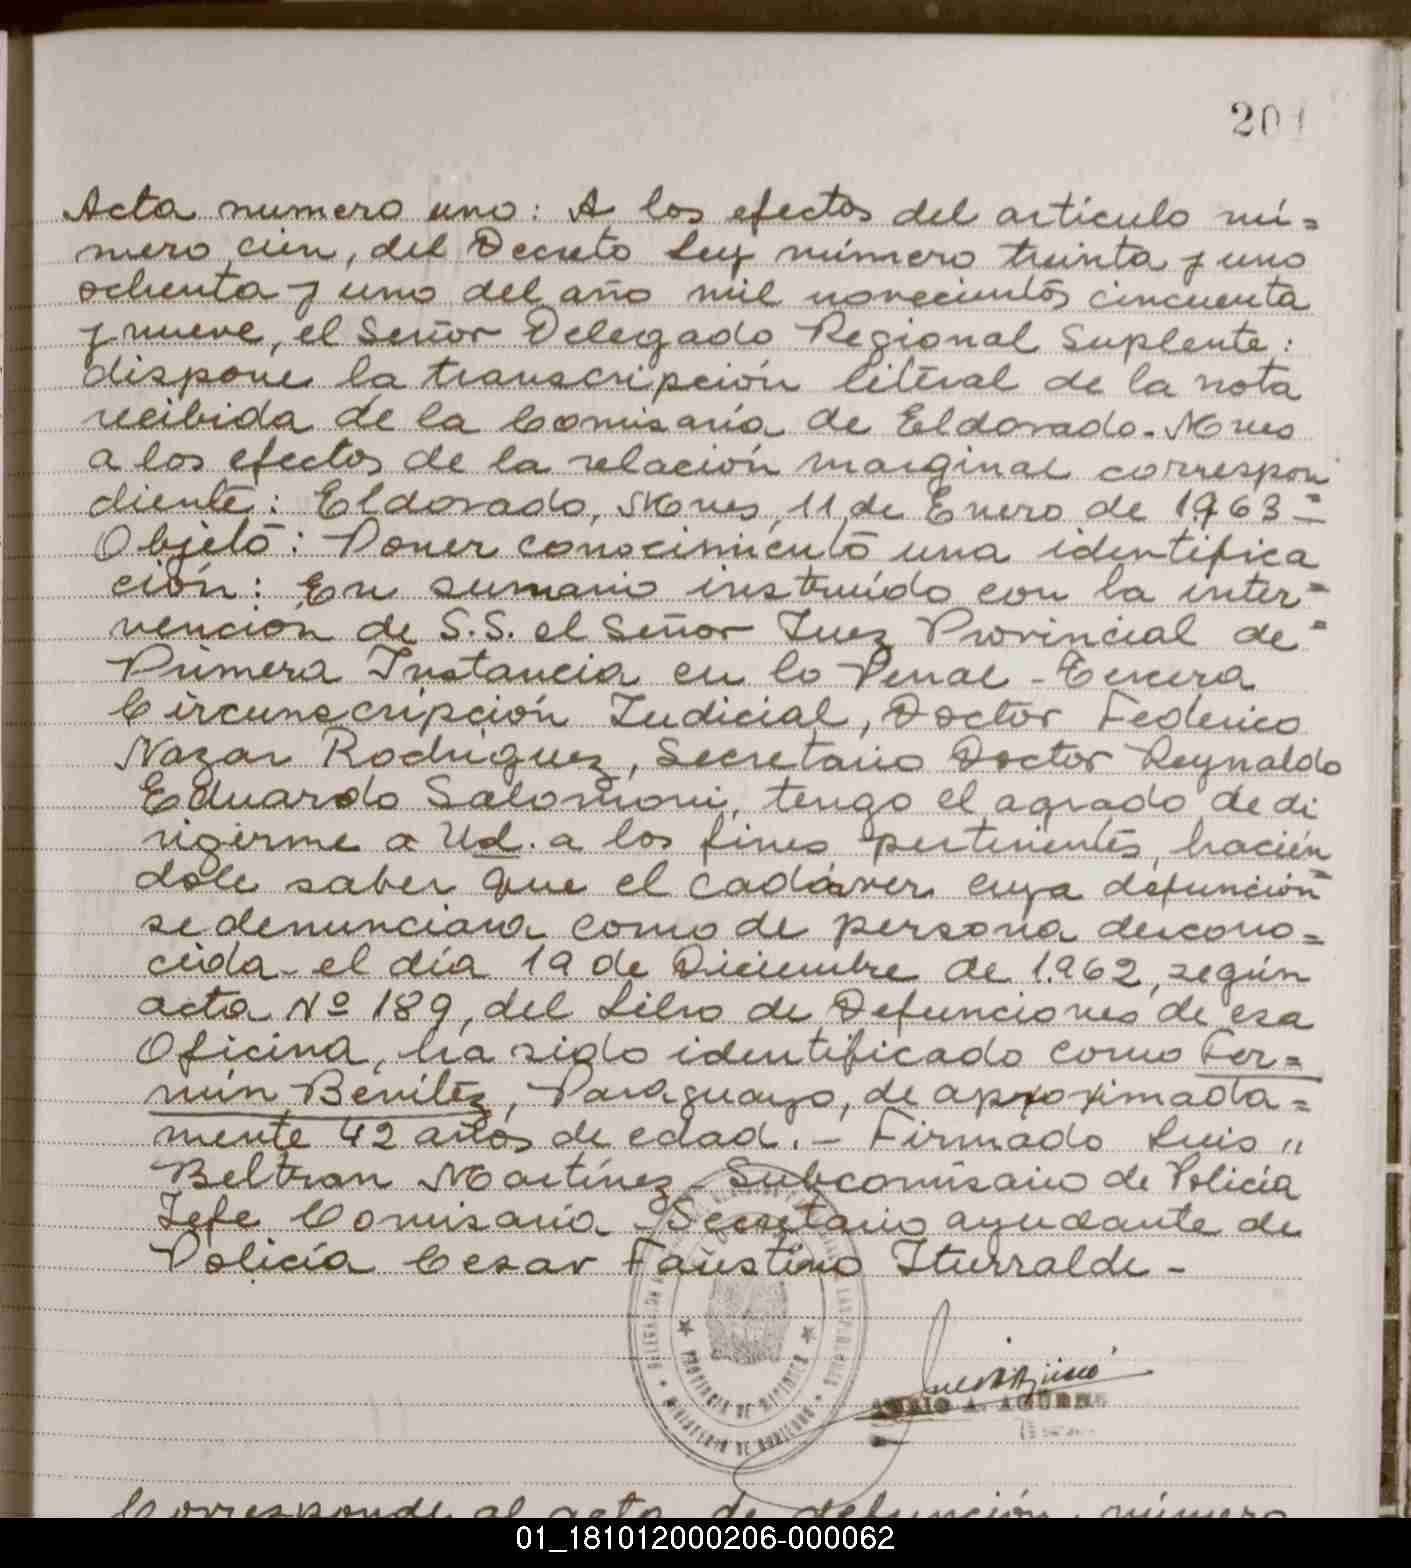 201
Acta numero uno: A los efectos del artículo nú=
mero cien, del Decreto Ley número treinta y uno
ochenta y uno del año mil novecientos cincuenta
y nueve, el Señor Delegado Regional Suplente:
dispone la transcripción literal de la nota
recibida de la Comisaría de Eldorado. Mnes
a los efectos de la relación marginal correspon=
diente: Eldorado, Mnes, 11 de Enero de 1963 -
Objeto: Poner conocimiento una identifica
ción: En sumario instruído con la inter=
vención de S.S. el Señor Juez Provincial de=
Primera Instancia en lo Penal - Tercera
Circunscripción Judicial, Doctor Federico
Nazar Rodriguez, Secretario Doctor Reynaldo
Eduardo Salomoni, tengo el agrado de di
rigirme a Ud. a los fines pertinentes, hacién=
dole saber que el cadáver cuya defunción
se denunciara como de persona descono=
cida - el día 19 de Diciembre de 1.962, según
acta Nº 189, del Libro de Defunciones de esa
Oficina, ha sido identificado como Fer=
min Benitez, Paraguayo, de aproximada=
mente 42 años de edad. - Firmado Luis "
Beltran Martínez - Subcomisario de Policía
Jefe Comisaria - Secretario ayudante de
Policía Cesar Faustino Iturralde -
PROVINCIA DE MISIONES
MINISTERIO DE GOBIERNO
A. AGUIRRE
Corresponde al acta de defunción, número
01_181012000206-000062